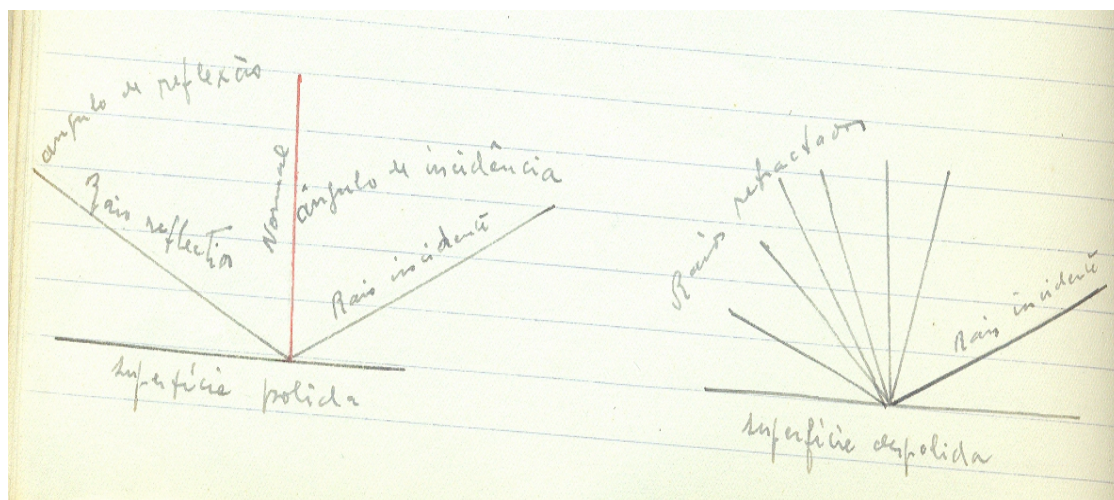 ângulo de reflexão
Raio reflectido
Normal
ângulo de incidência
Raio incidente
superfície polida
Raios refractados
Raio incidente
superfície despolida